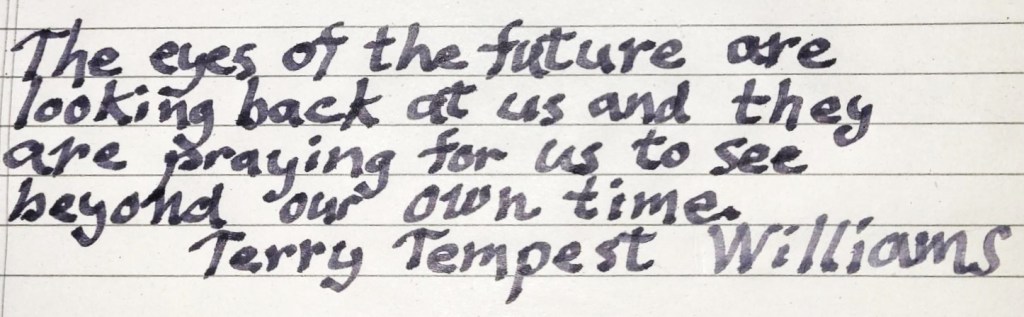 The eyes of the future are
looking back at us and they
are praying for us to see
beyond our own time.
Terry Tempest Williams